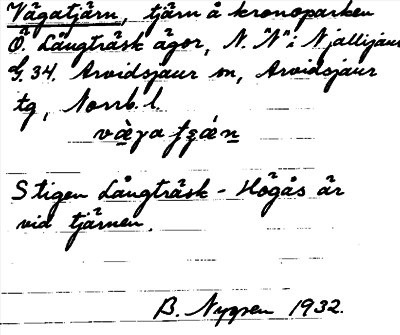 Vågatjärn, tjärn å kronoparken
Ö. Långträsk ägor, N. "N" i Njallijaur
G. 34. Arvidsjaur sn, Arvidsjaur
tg, Norrb. l.
Stigen Långträsk - Högås är
vid tjärnen.
B. Nygren 1932.